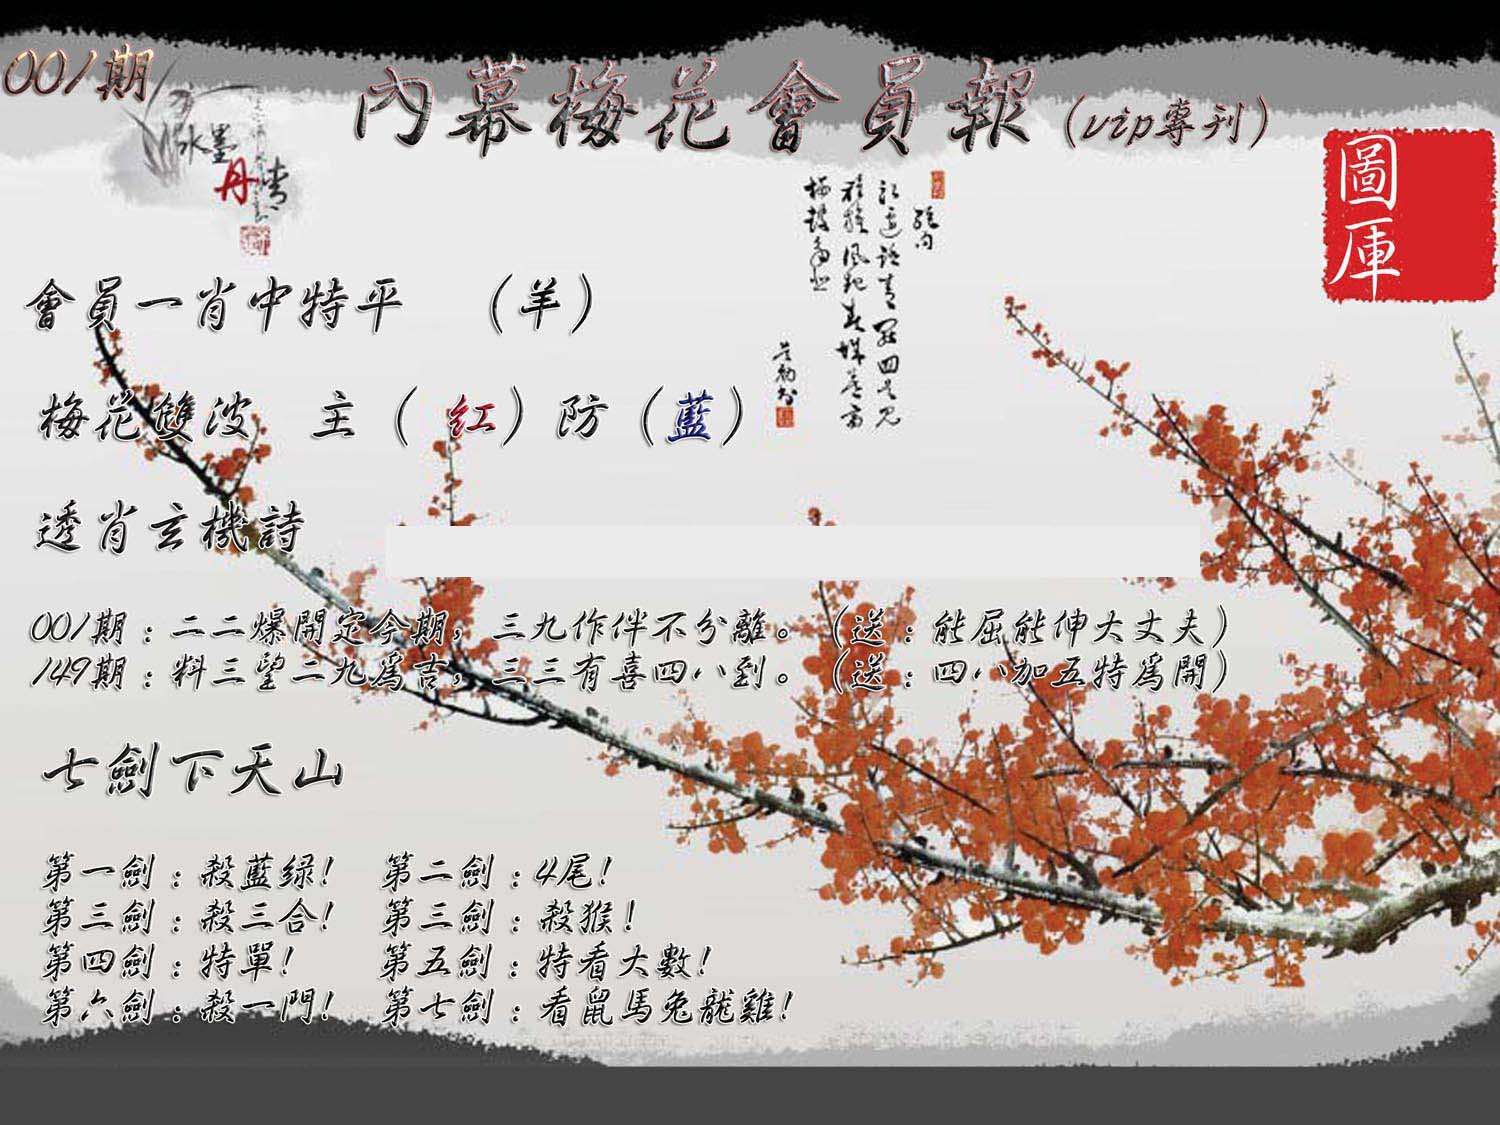 001期
內幕梅花會員報(vip專刊)
水墨
丹青
圖
庫
會員一肖中特平 (羊)
梅花雙波 主(紅)防(藍)
透肖玄機詩
001期:二二爆開定今期,三九作伴不分離。(送:能屈能伸大丈夫)
149期:料三望二九為吉,三三有喜四八到。(送:四八加五特為開)
七劍下天山
第一劍:殺藍绿! 第二劍:4尾!
第三劍:殺三合! 第三劍:殺猴!
第四劍:特單! 第五劍:特看大數!
第六劍:殺一門! 第七劍:看鼠馬兔龍雞!